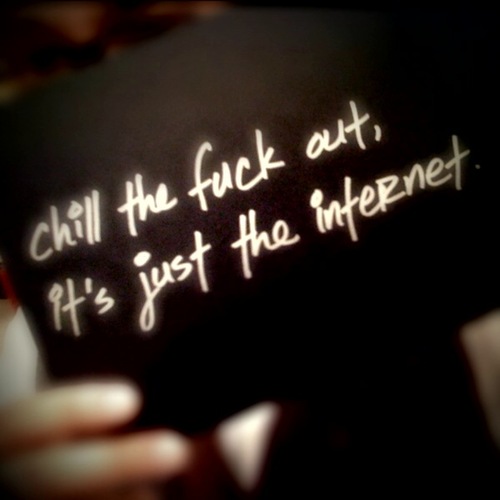 chill the fuck out,
it's just the inteRnet.